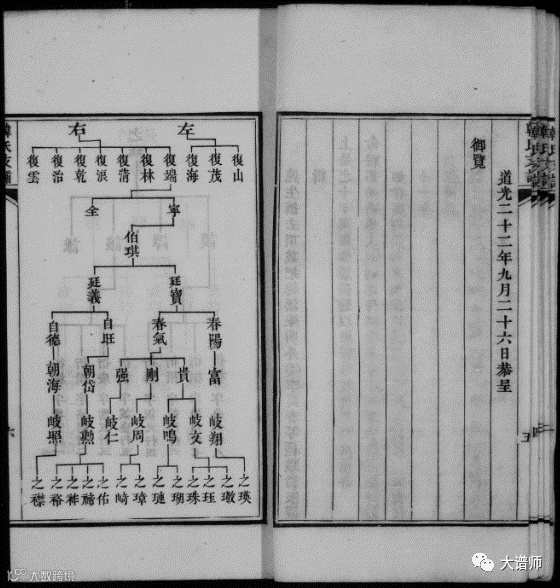 韓氏支譜
道光二十二年九月二十六日恭呈
御覽
五
左
右
復山
復茂
復海
復端
復林
復蒲
復浪
復乾
復治
復雲
寧
全
伯琪
廷寶
廷義
春陽
春氣
自旺
自德
富
貴
剛
强
朝岱
朝海
岐翔
岐文
岐鳴
岐周
岐仁
岐勲
岐照
之瑛
之璥
之珏
之珠
之瑚
之璉
之璋
之崎
之佑
之裕
之襟
韓氏支譜
六
大数跨境
大谱师